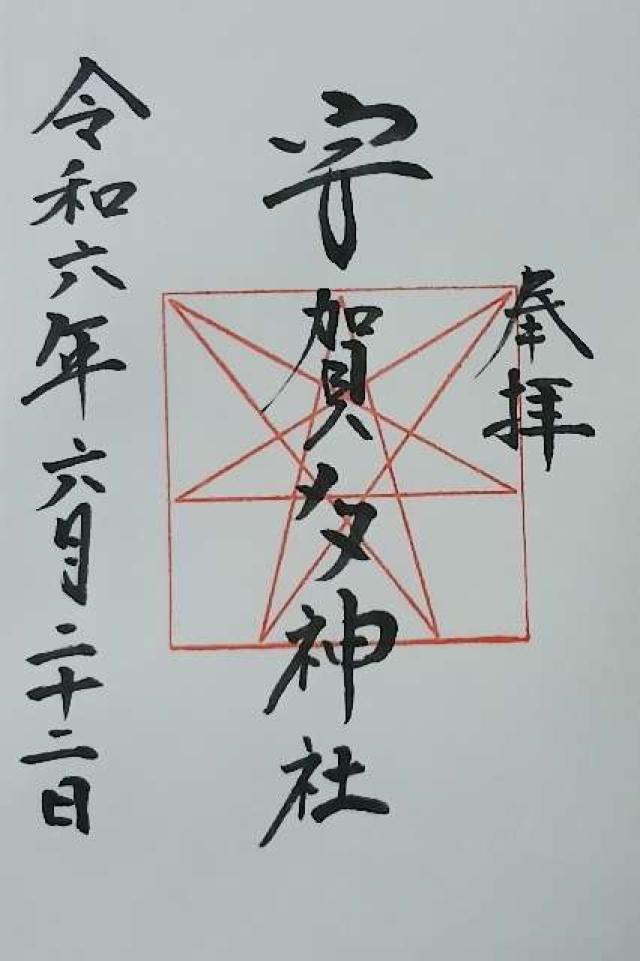 奉拝
宇賀多神社
令和六年六月二十二日